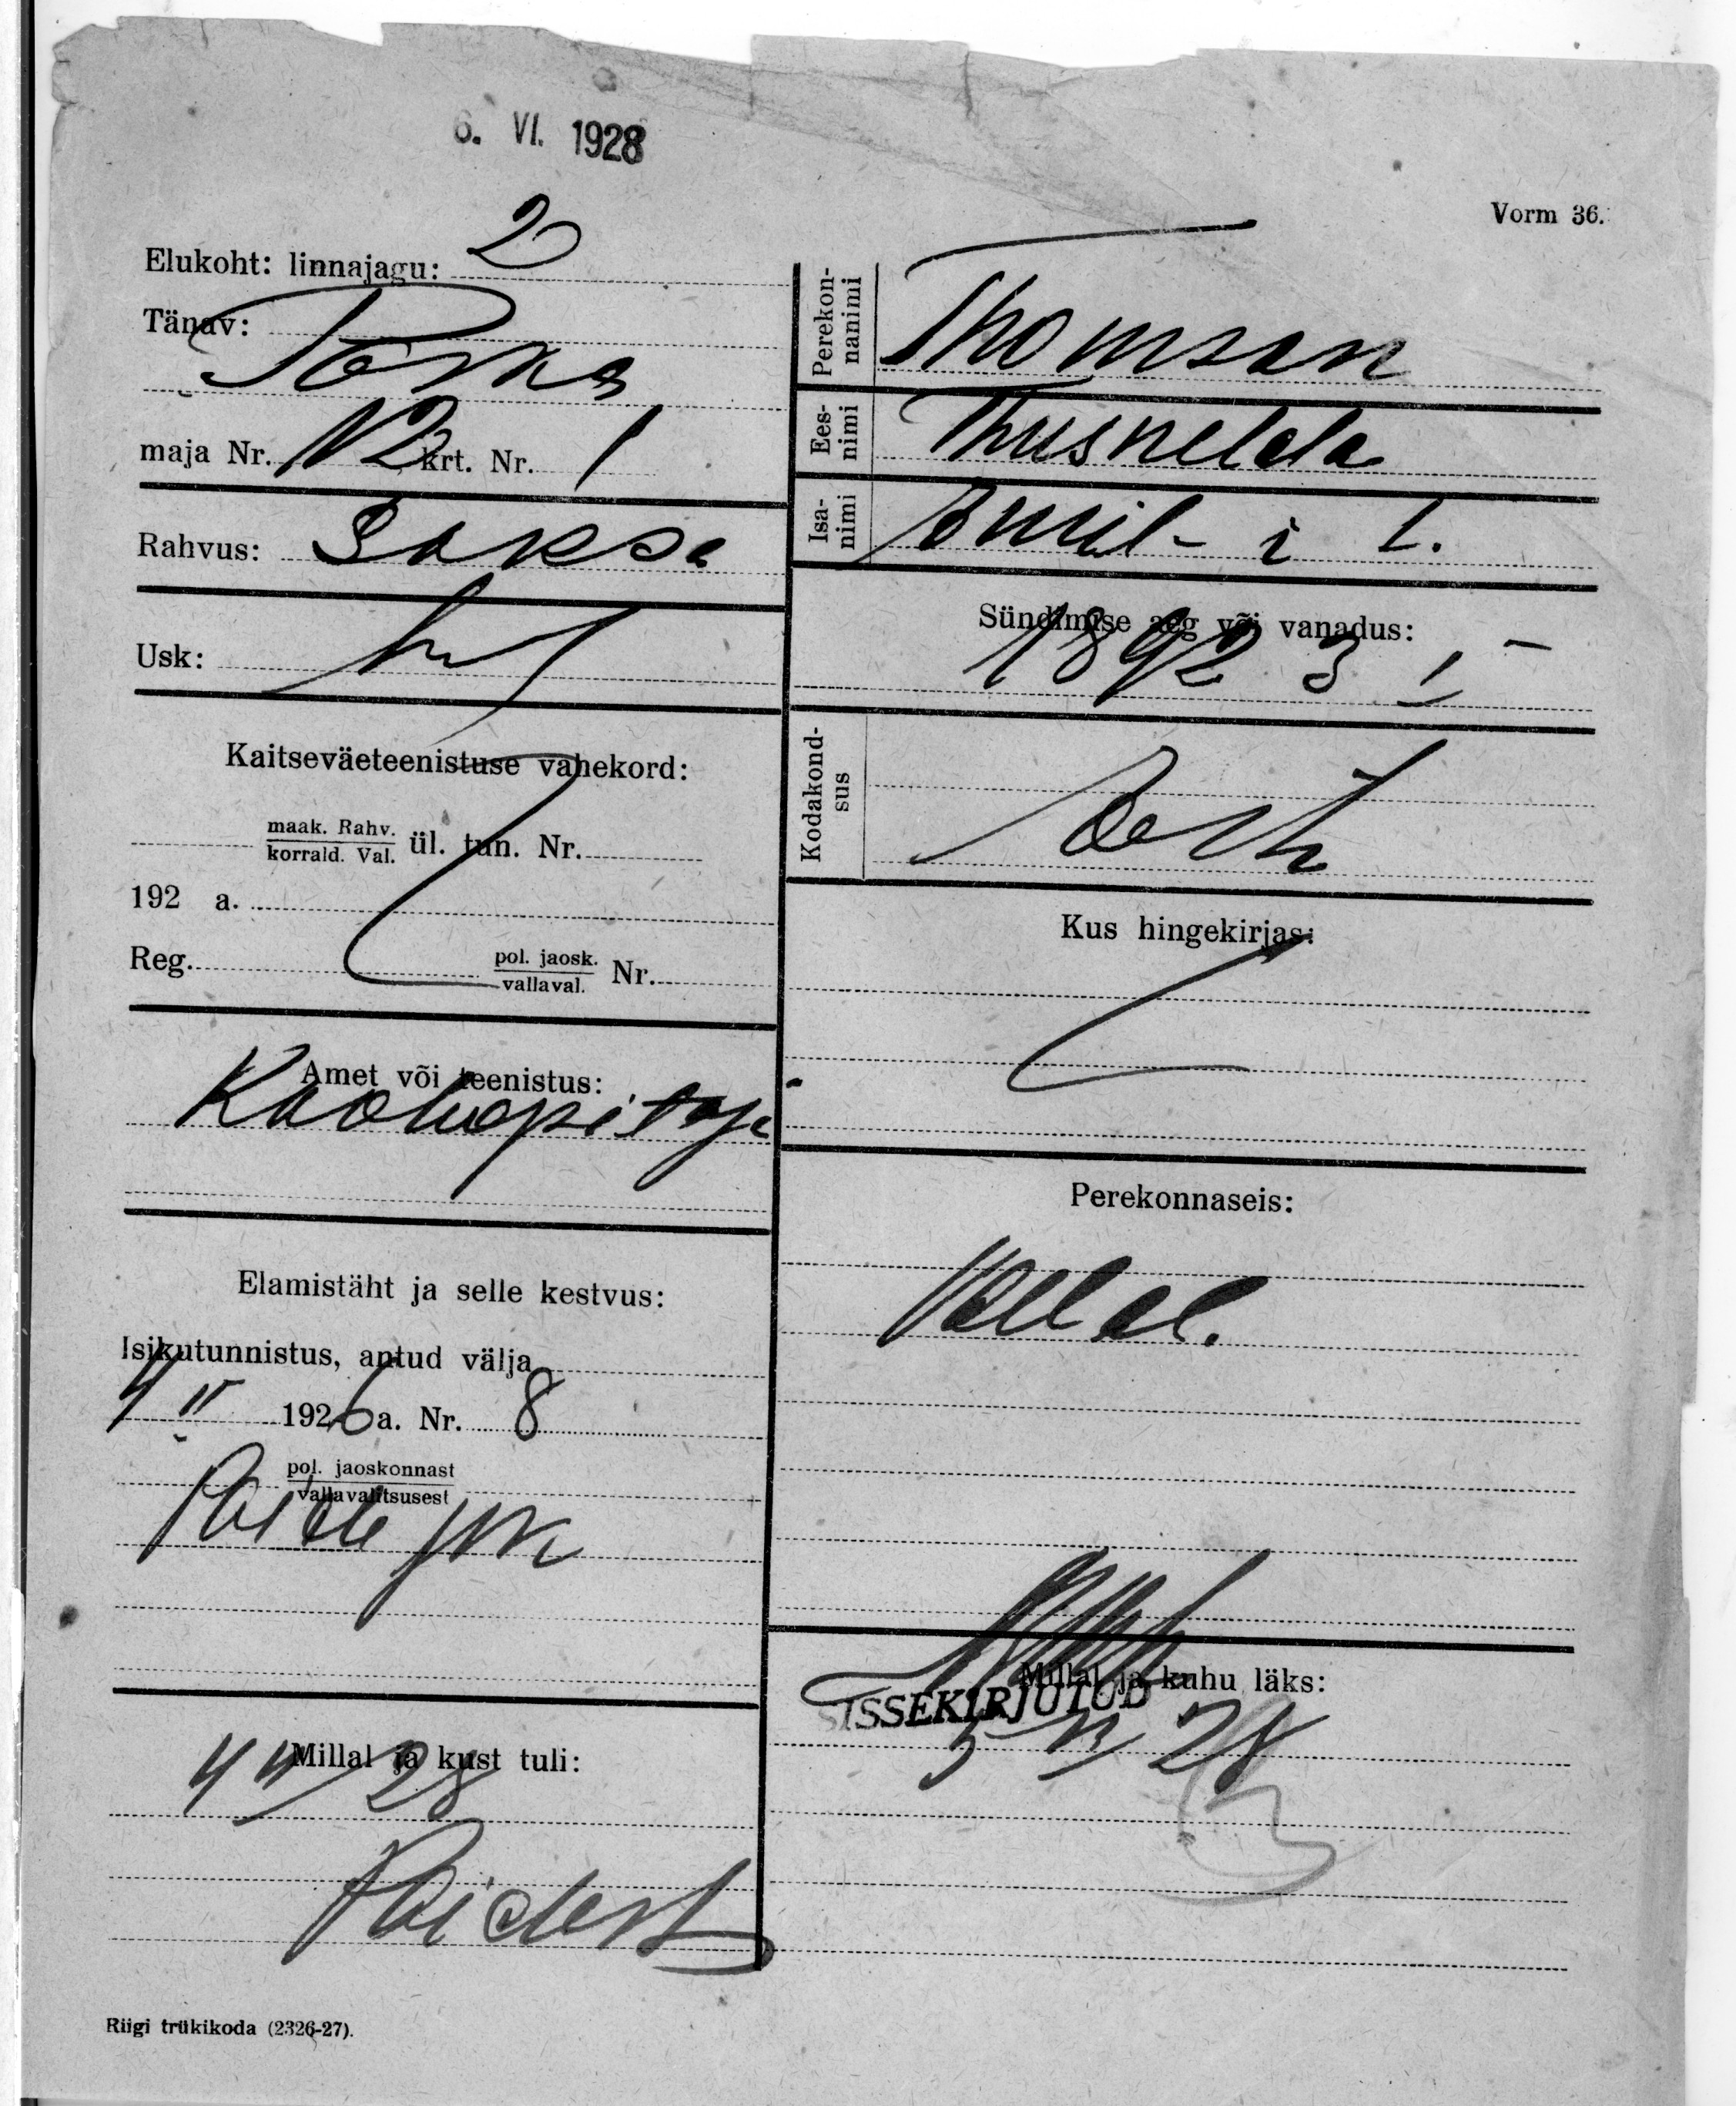 6. VI. 1928
Vorm 36.
Elukoht: linnajagu: 2
Tänav:
maja Nr. N2 krt. Nr. 1
Rahvus: Saksa
Usk: lut
Kaitseväeteenistuse vahekord:
maak. Rahv.
korrald. Val. ül. tun. Nr.
192 a.
Reg. pol. jaosk.
vallaval. Nr.
Amet või teenistus:
Elamistäht ja selle kestvus:
Isikutunnistus, antud välja
1926 a. Nr. 8
pol. jaoskonnast
vallavalitsusest
Paide
Millal ja kust tuli:
28
Paidest
Riigi trükikoda (2326-27).
Perekon-
nanimi Thomson
Ees-
nimi Thusnelda
Isa-
nimi Emil- i t.
Sündimise aeg või vanadus:
1892 3 I
Kodakond-
sus Eesti
Kus hingekirjas:
Perekonnaseis:
Vallal.
Millal ja kuhu läks:
SISSEKIRJUTUD
28